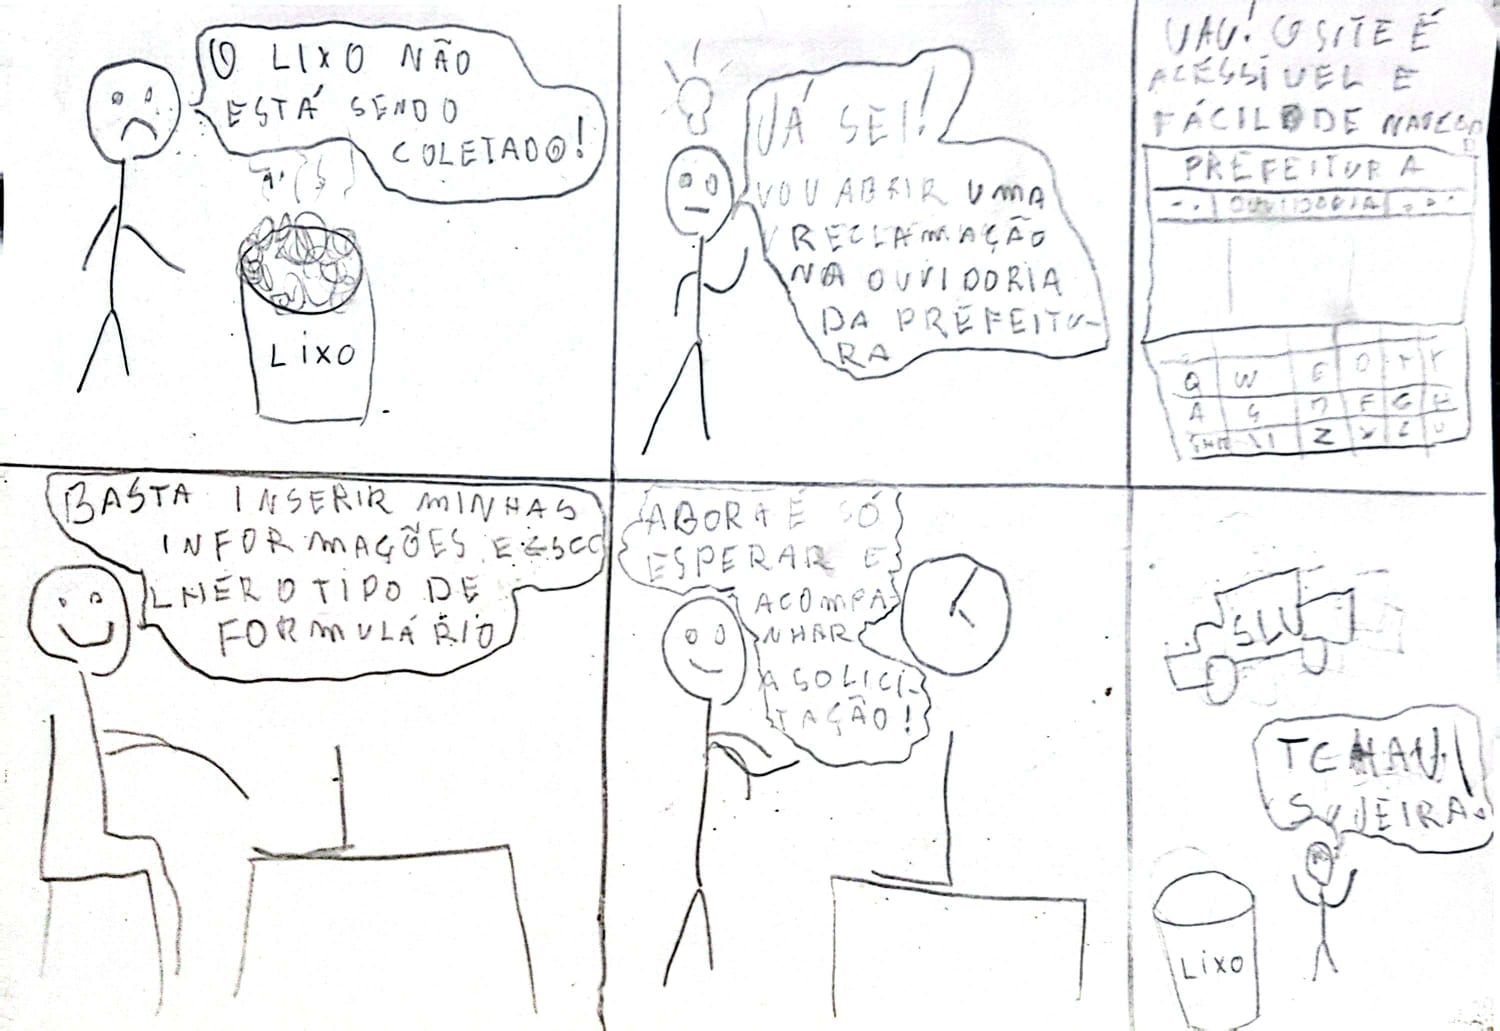 O LIXO NÃO
ESTÁ SENDO
COLETADO!
LIXO
JÁ SEI!
VOU ABRIR UMA
RECLAMAÇÃO
NA OUVIDORIA
DA PREFEITU-
RA
UAU! O SITE É
ACESSÍVEL E
FÁCIL DE
PREFEITURA
OUVIDORIA
Q W E
A F G
Z
BASTA INSERIR MINHAS
INFORMAÇÕES E ESCO
LHER O TIPO DE
FORMULÁRIO
AGORA É SÓ
ESPERAR E
ACOMPA
NHAR
A SOLICI-
TAÇÃO!
SLU
TCHAU!
SUJEIRA.
LIXO